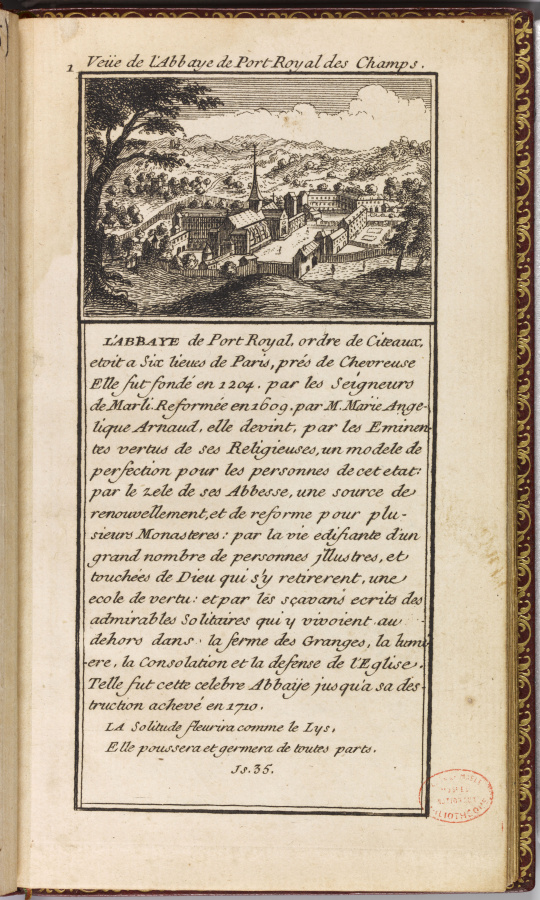 1 Veüe de L'Abbaye de Port-Royal des Champs.
L'ABBAYE de Port Royal, ordre de Citeaux,
etoit a Six lieues de Paris, prés de Chevreuse
Elle fut fondé en 1204. par les Seigneurs
de Marli. Reformée en 1609. par M. Marie Ange-
lique Arnaud, elle devint, par les Eminen
tes vertus de ses Religieuses, un modele de
perfection pour les personnes de cet etat:
par le zele de ses Abbesse, une source de
renouvellement, et de reforme pour plu-
sieurs Monasteres: par la vie edifiante d'un
grand nombre de personnes jllustres, et
touchées de Dieu qui s'y retirerent, une
ecole de vertu: et par les sçavans ecrits des
admirables Solitaires qui y vivoient au
dehors dans la ferme des Granges, la lumi
-ere, la Consolation et la defense de l'Eglise.
Telle fut cette celebre Abbaÿe jusqu'a sa des-
truction achevé en 1710.
LA Solitude fleurira comme le Lys,
Elle poussera et germera de toutes parts.
Js. 35.